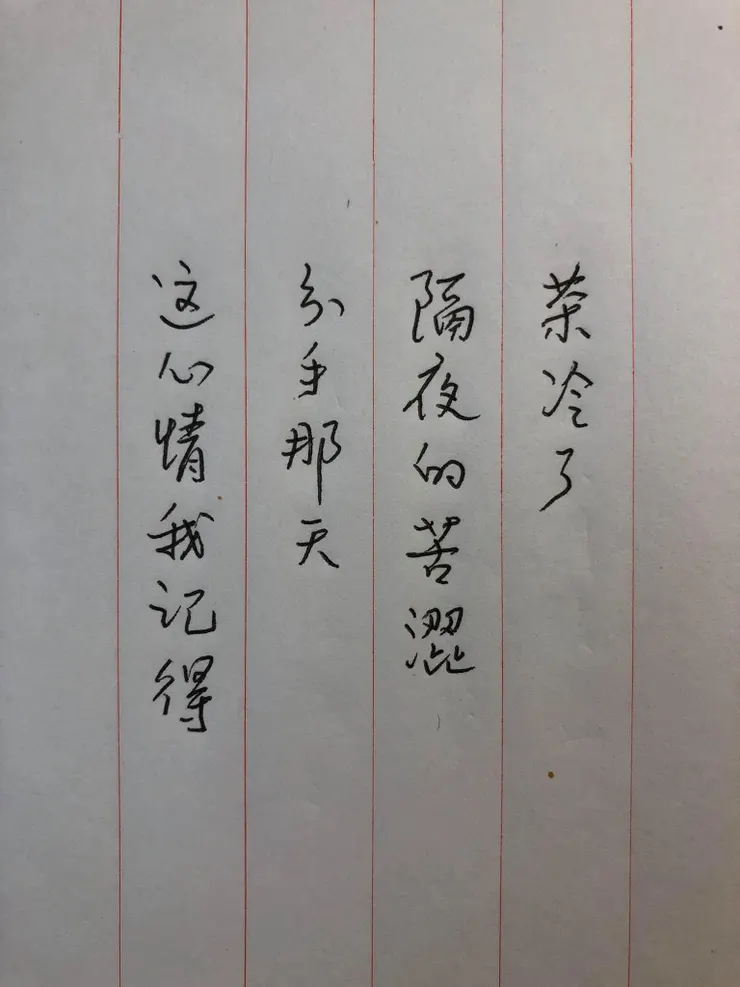 茶冷了
隔夜的苦涩
分手那天
这心情我记得